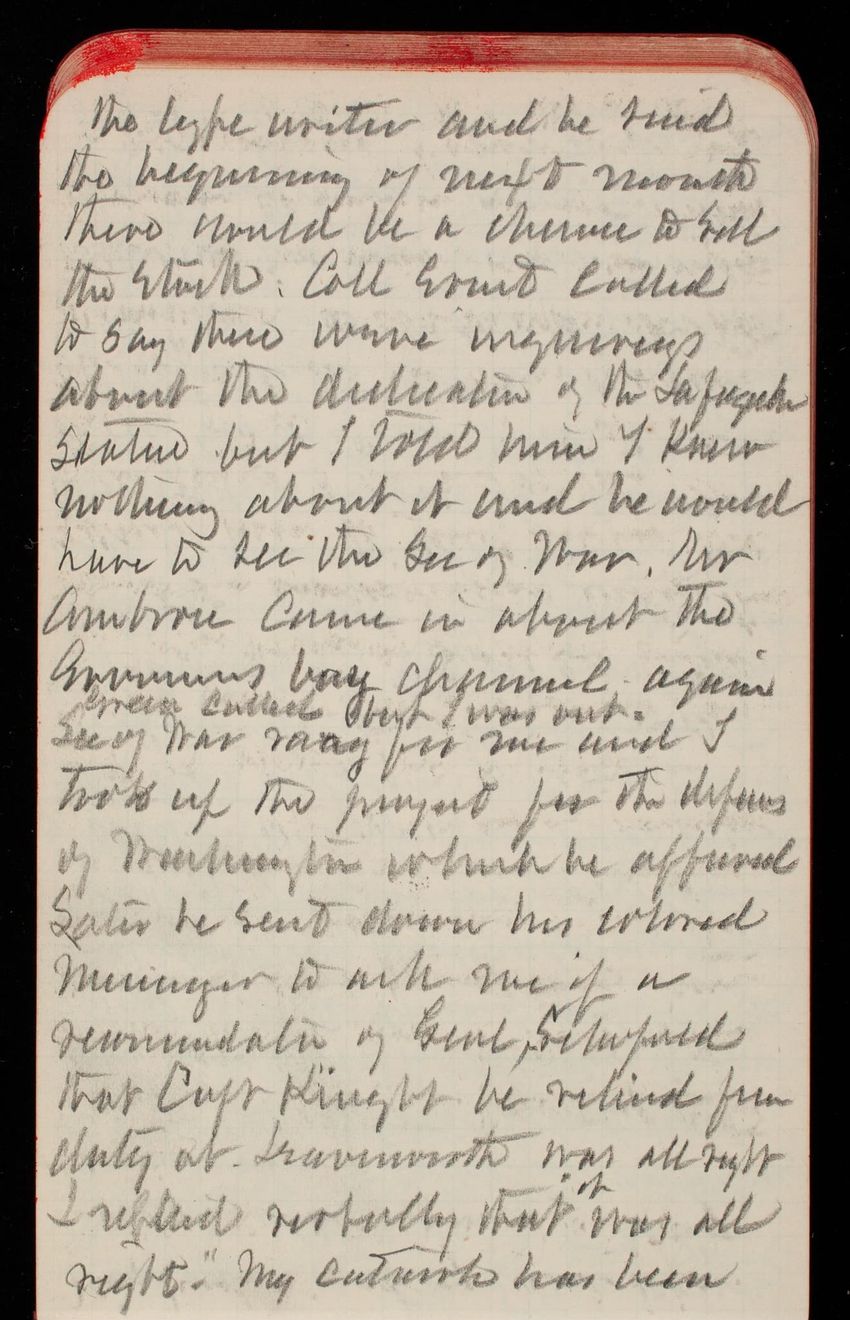 the type writer and he said
the beginning of next month
there would be a chance to sell
the Stock. Coll Ernst called
to say there were inquireys
about the dedicatin of the Lafayette
Statue but I told him I knew
nothing about it and he would
have to see the Sec of War. Mr
Ambrose came in about the
Govenurs bay channel again
Green called but I was out.
Sec of War rang for me and I
took up the project for the defens
of Washington which he approved
Later he sent down his colored
Messenger to ask me if a
recomendatin of Genl Schofield
that Capt Knight be relievd from
duty at Leavenworth was all right
I replied verbally that "it was all
right." My catarrh has been